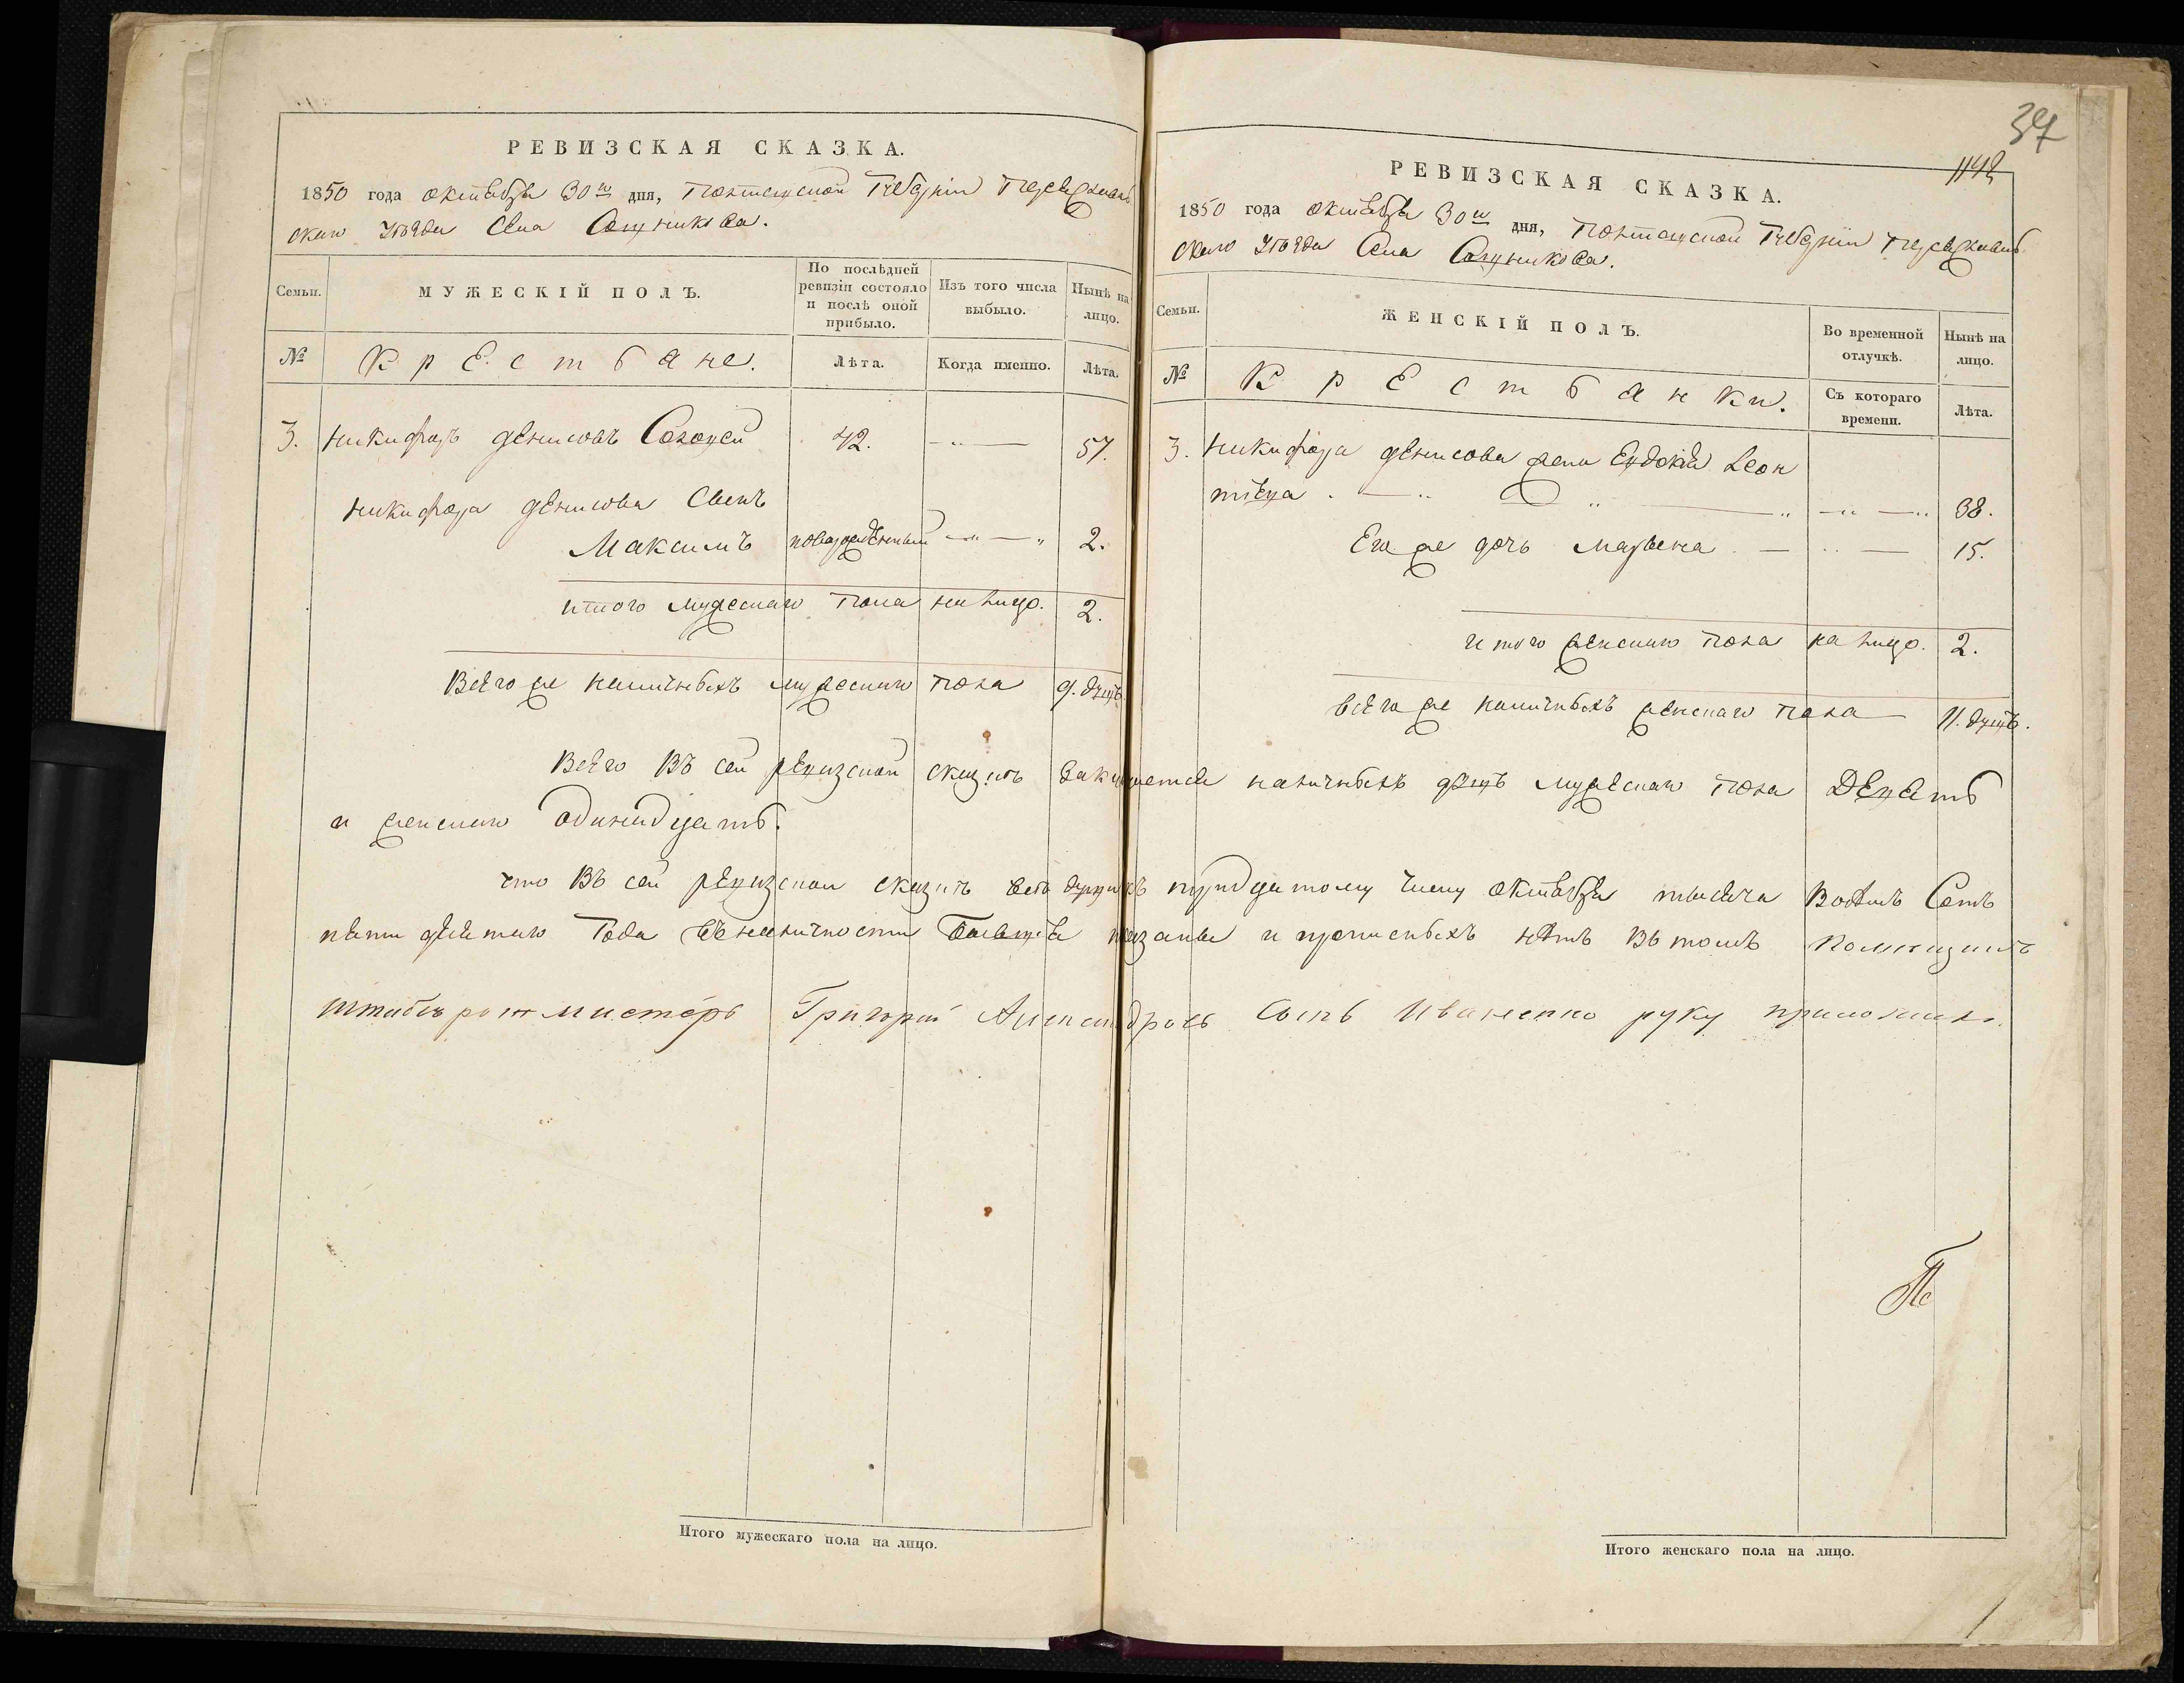 37
1142
РЕВИЗСКАЯ СКАЗКА.
1850 года октября 30го дня, Полтавской Губернiи Переяслав
скаго уѣзда Села Сошникова.
Семьи.
МУЖЕСКІЙ ПОЛЪ.
По послѣдней ревизіи состояло и послѣ оной прибыло.
Изъ того числа выбыло.
Нынѣ на лицо.
№
Крестьяне.
Лѣта.
Когда именно.
Лѣта.
3. Никифоръ Денисовъ 42. 57.
Никифора Денисова Сынъ
Максимъ новорожденный 2.
итого мужескаго пола на лицо. 2.
Всего же наличныхъ мужескаго пола 9. душъ.
РЕВИЗСКАЯ СКАЗКА.
1850 года октября 30го дня, Полтавской Губернiи Переяслав
скаго уѣзда Села Сошникова.
Семьи.
ЖЕНСКІЙ ПОЛЪ.
Во временной отлучкѣ.
Нынѣ на лицо.
№
Крестьянки.
Съ котораго времени.
Лѣта.
3. Никифора Денисова жена Евдокія Леон
тіева 38.
Его же дочь Марѳена 15.
итого женскаго пола на лицо. 2.
всего же наличныхъ женскаго пола 11. душъ.
Всего въ сей ревизской сказкѣ наличныхъ душъ мужескаго пола Девять
и женскаго одинадцать.
что въ сей ревизской сказкѣ всѣ души къ тридцатому числу октября тысяча восѣмъ Сотъ
пятидесятаго Года въ наличности показаны и прописныхъ нѣтъ въ томъ
штабъ ротмистеръ Григорій Александровъ Сынъ Иваненко руку приложилъ.
Итого мужескаго пола на лицо.
Итого женскаго пола на лицо.